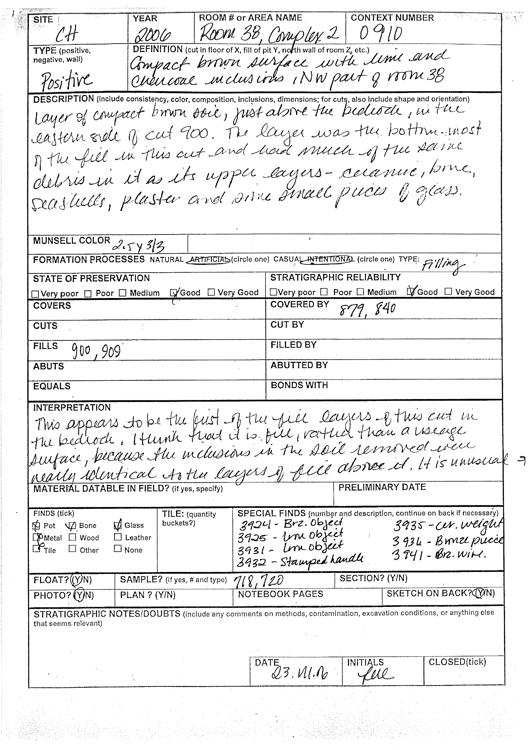 SITE CH YEAR 2006 ROOM # or AREA NAME Room 38, Complex 2 CONTEXT NUMBER 0910
TYPE (positive, negative, wall) Positive DEFINITION (cut in floor of X, fill of pit Y, north wall of room Z, etc.)
Compact brown surface with lime and
charcoal inclusions, NW part of room 38
DESCRIPTION (include consistency, color, composition, inclusions, dimensions; for cuts, also include shape and orientation)
Layer of compact brown soil, just above the bedrock, in the
eastern side of cut 900. The layer was the bottom-most
of the fill in this cut and had much of the same
debris in it as its upper layers - ceramic, bone,
seashells, plaster and some small pieces of glass.
MUNSELL COLOR 2.5Y 3/3
FORMATION PROCESSES NATURAL ARTIFICIAL (circle one) CASUAL INTENTIONAL (circle one) TYPE: Filling
STATE OF PRESERVATION STRATIGRAPHIC RELIABILITY
Very poor Poor Medium Good Very Good Very poor Poor Medium Good Very Good
COVERS COVERED BY 879, 840
CUTS CUT BY
FILLS 900, 909 FILLED BY
ABUTS ABUTTED BY
EQUALS BONDS WITH
INTERPRETATION
This appears to be the first of the fill layers of this cut in
the bedrock. I think that it is fill, rather than a useage
surface, because the inclusions in the soil removed were
nearly identical to the layers of fill above it. It is unusual →
MATERIAL DATABLE IN FIELD? (if yes, specify) PRELIMINARY DATE
FINDS (tick) TILE: (quantity buckets?) SPECIAL FINDS (number and description, continue on back if necessary)
Pot Bone Glass
Metal Wood Leather
Tile Other None
3924 - Brz. Object 3935 - cer. weight
3925 - Iron Object 3936 - Bronze piece
3931 - Iron Object 3941 - Bz. wire.
3932 - Stamped handle
FLOAT? (Y/N) SAMPLE? (if yes, # and type) 718, 720 SECTION? (Y/N)
PHOTO? (Y/N) PLAN? (Y/N) NOTEBOOK PAGES SKETCH ON BACK? (Y/N)
STRATIGRAPHIC NOTES/DOUBTS (include any comments on methods, contamination, excavation conditions, or anything else
that seems relevant)
DATE 23.VII.06 INITIALS CLOSED(tick)